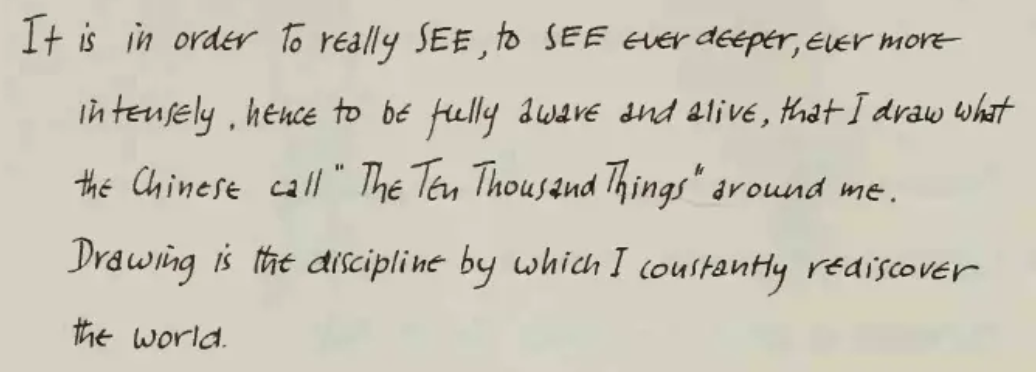 It is in order to really SEE, to SEE ever deeper, ever more
intensely, hence to be fully aware and alive, that I draw what
the Chinese call "The Ten Thousand Things" around me.
Drawing is the discipline by which I constantly rediscover
the world.